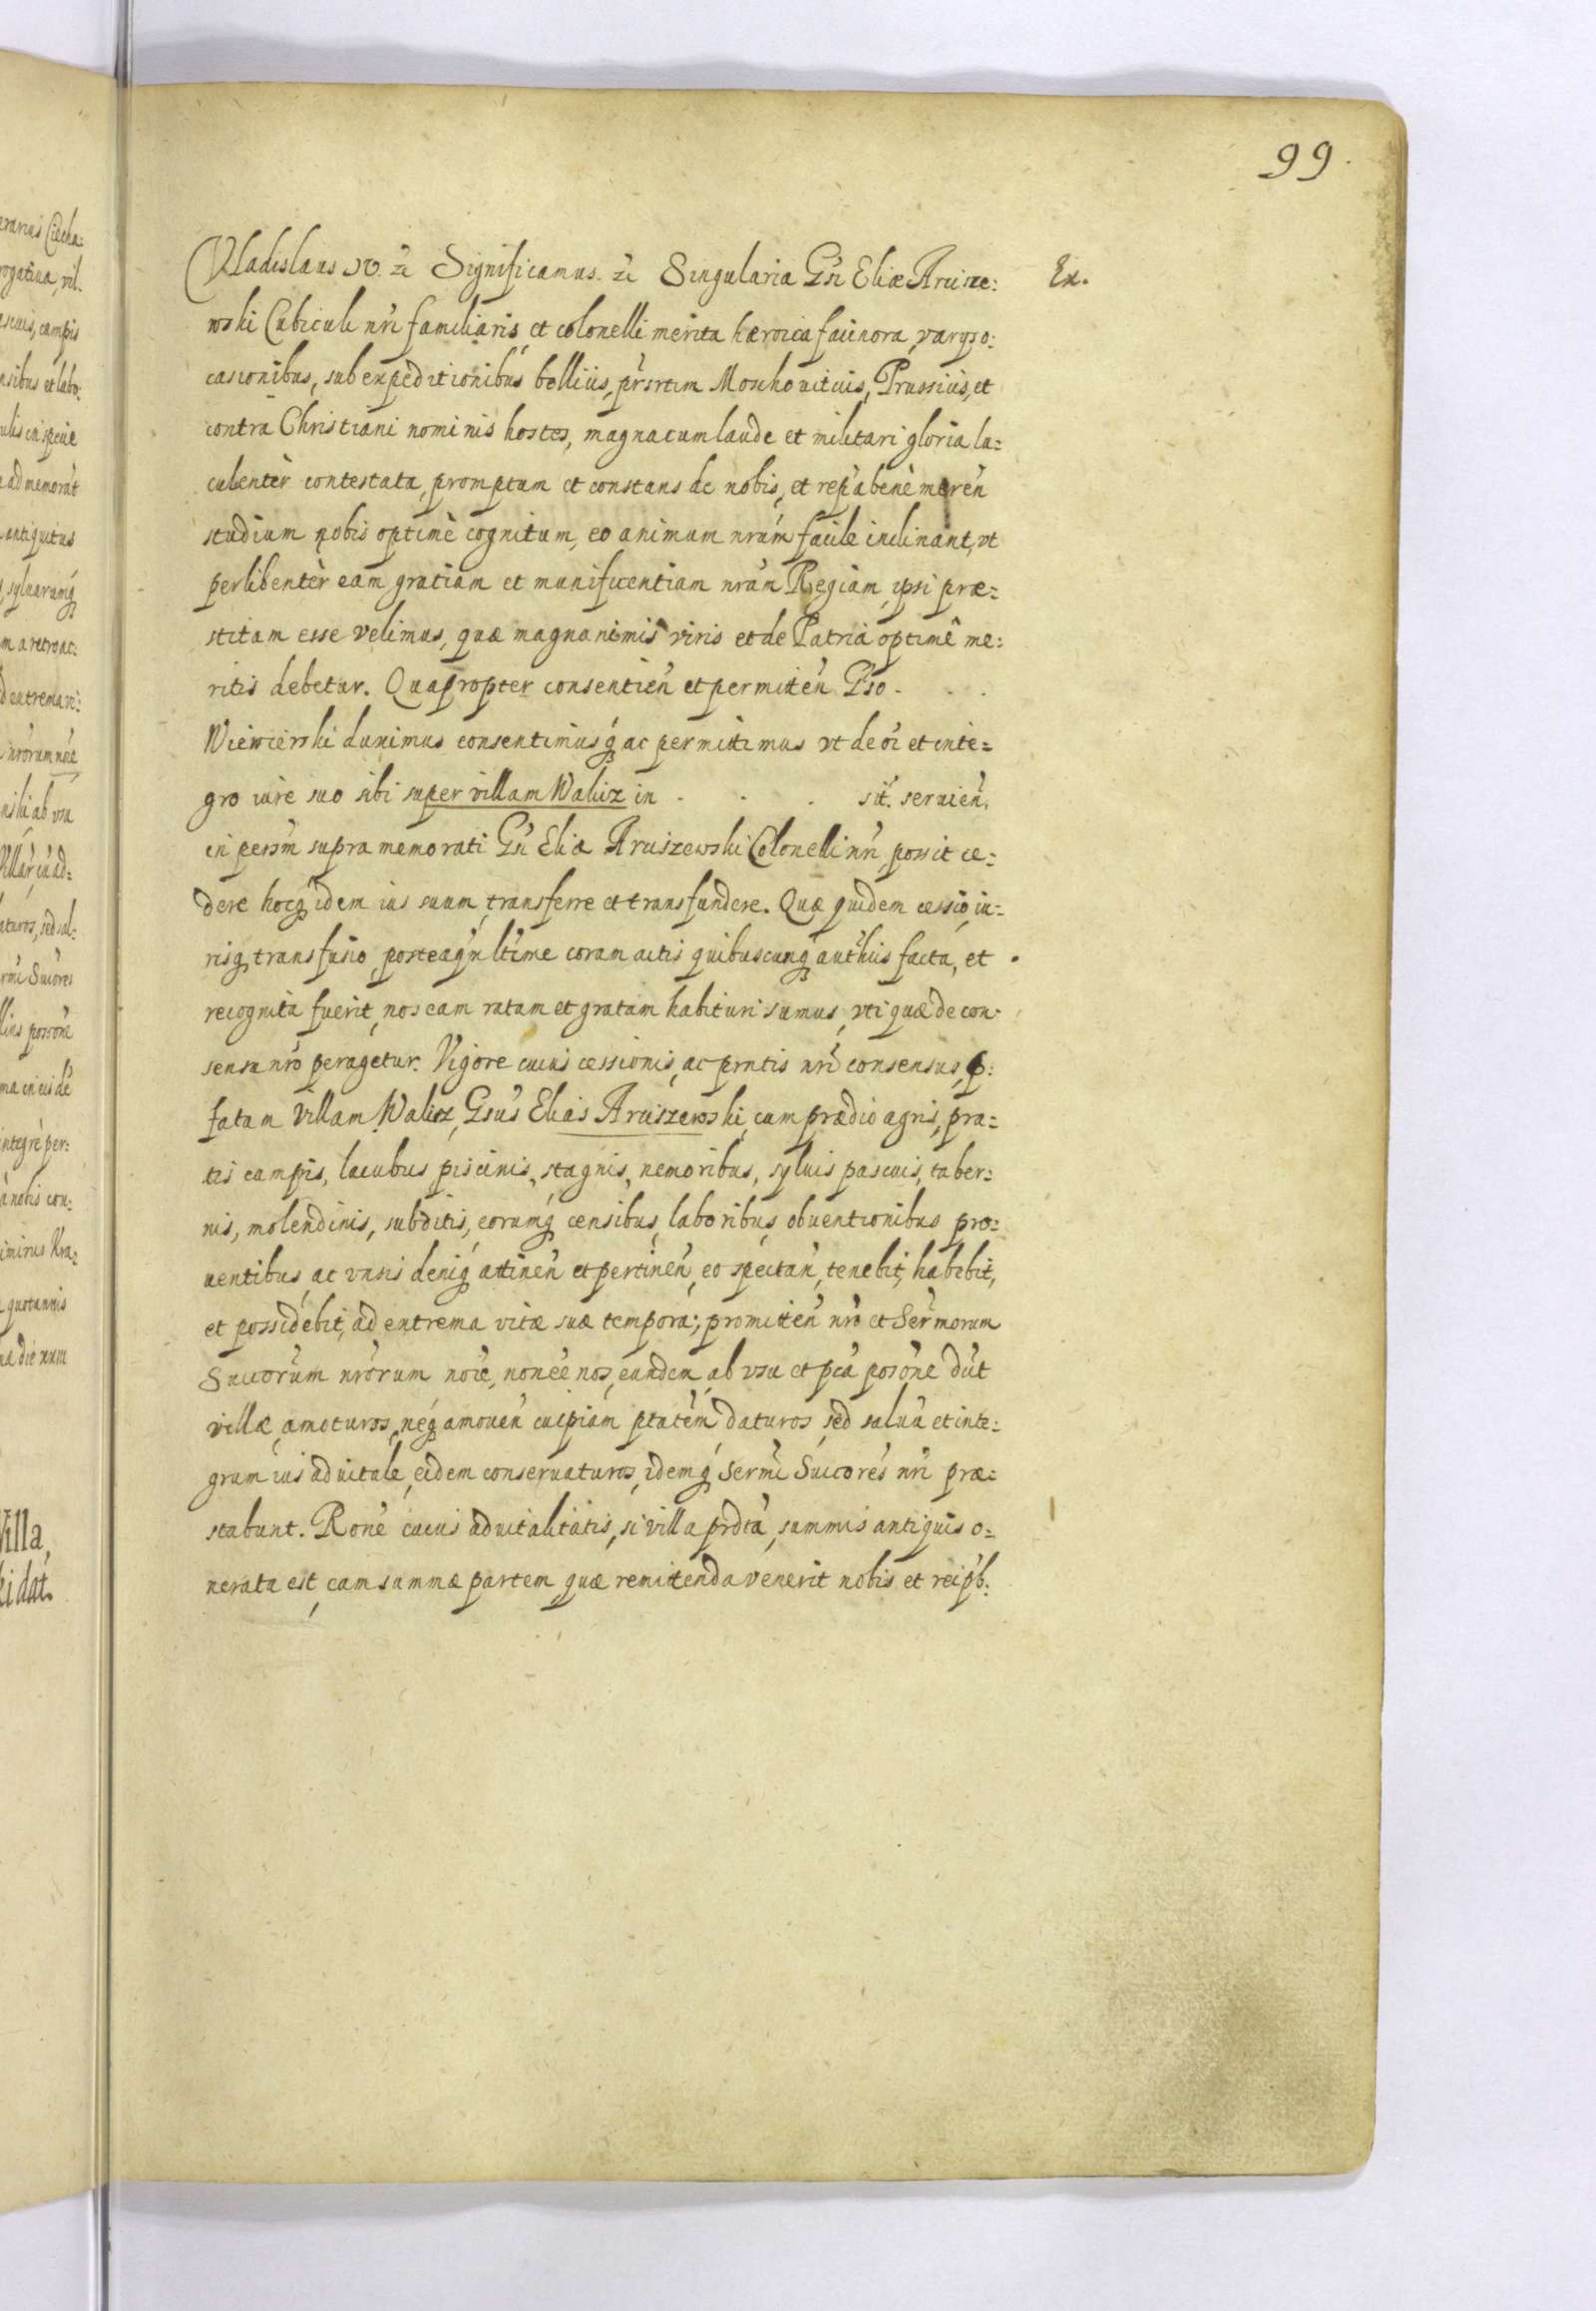 99.
Vladislaus IV. zc Significamus. zc Singularia Gsi Eliæ Arcisze:
Ex.
wski Cubiculi nri familiaris, et colonelli merita hæroica facinora, varijs o:
casionibus, sub expeditionibus bellicis, prsrtim Moschouiticis, Prussicis, et
contra Christiani nominis hostes, magna cum laude et militari gloria lu=
culentèr contestata, promptum et constans de nobis, et repca benè meren
studium nobis optimè cognitum, eo animum nrum facile inclinant, vt
perlibentèr eam gratiam et munificentiam nram Regiam, ipsi præ=
stitam esse velimus, quæ magnanimis viris et de Patria optimè me:
ritis debetur. Quapropter consentien et permitten Gso . . .
Wiewierski duximus consentimusq ac permittimus vt de oi et inte=
gro iure suo sibi super villam Walicz in . . . sit. seruien,
in persm supra memorati Gsi Eliæ Arciszewski Colonelli nri possit ce=
dere hocq idem ius suum transferre et transfundere. Quæ quidem cessio, iu=
risq transfusio, posteaq̃ ltime coram actis quibuscunq authcis facta, et
recognita fuerit, nos eam ratam et gratam habituri sumus, vti quæ de con
sensu nro peragetur. Vigore cuius cessionis, ac prntis nri consensus, p:
fatam villam Walicz, Gsus Elias Arciszewski, cum prædio agris, pra=
tis campis, lacubus piscinis, stagnis, nemoribus, syluis pascuis, taber=
nis, molendinis, subditis, eorumq censibus, laboribus, obuentionibus pro=
uentibus, ac vnsis deniq attinen et pertinen, eo spectan, tenebit, habebit,
et possidebit, ad extrema vitæ suæ tempora; promitten nro et Sermorum
Succorum nrorum noie, non ee nos, eundem, ab vsu et pca posone dict
villæ, amoturos, neq amouen cuipiam ptatem daturos, sed saluũ et inte:
grum ius aduitale, eidem conseruaturos, idemq Sermi Succores nri præ=
stabunt. Rone cuius aduitalitatis, si villa prdta, summis antiquis o=
nerata est, eam summæ partem, quæ remittenda venerit nobis et reipb: